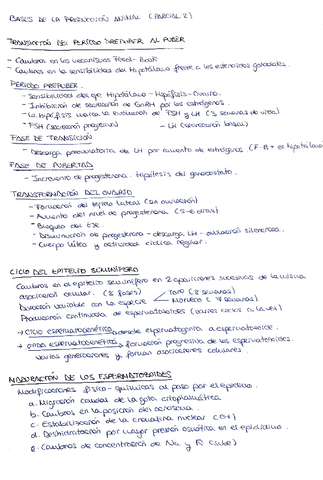 BASES DE LA PRODUCCIÓN ANIMAL (PARCIAL 2)
TRANSICIÓN DEL PERÍODO PREPUBER AL PUBER
- Cambios en los mecanismos Feed-Back
- Cambios en la sensibilidad del Hipotálamo frente a los esteroides gonadales.
PERÍODO PREPUBER
- Sensibilidad del eje Hipotálamo - Hipófisis - Ovario.
- Inhibición de secreción de GnRH por los estrógenos.
- La hipófisis marca la evolución de FSH y LH (3 semanas de vida)
- FSH (secreción progresiva) - LH (secreción basal)
FASE DE TRANSICIÓN
- Descarga preovulatoria de LH por aumento de estrógenos (F-B + el hipotálamo
FASE DE PUBERTAD
- Incremento de progesterona. hipótesis del gonadostato.
TRANSFORMACIÓN DEL OVARIO
- Formación del tejido luteal (sin ovulación)
- Aumento del nivel de progesterona (5-6 días)
- Bloqueo del EJE.
- Disminución de progesterona - descarga LH - ovulación silenciosa.
- Cuerpo lúteo y actividad cíclica regular.
CICLO DEL EPITELIO SEMINÍFERO
Cambios en el epitelio seminífero en 2 apariciones sucesivas de la misma
asociación celular. (8 fases)
Duración variable con la especie Toro (8 semanas) Morueco (7 semanas)
Producción continuada de espermatozoides (varios ciclos a la vez)
→ CICLO espermatogenético desde espermatogonia a espermatozoide.
→ onda espermatogenética formación progresiva de los espermatozoides.
varias generaciones y forman asociaciones celulares.
MADURACIÓN DE LOS ESPERMATOZOIDES
Modificaciones físico-químicas al paso por el epidídimo.
a. Migración caudal de la gota citoplasmática.
b. Cambios en la posición del acrosoma.
c. Estabilización de la cromatina nuclear
d. Deshidratación por mayor presión osmótica en el epidídimo.
e. Cambios de concentración de Na y K (sube)